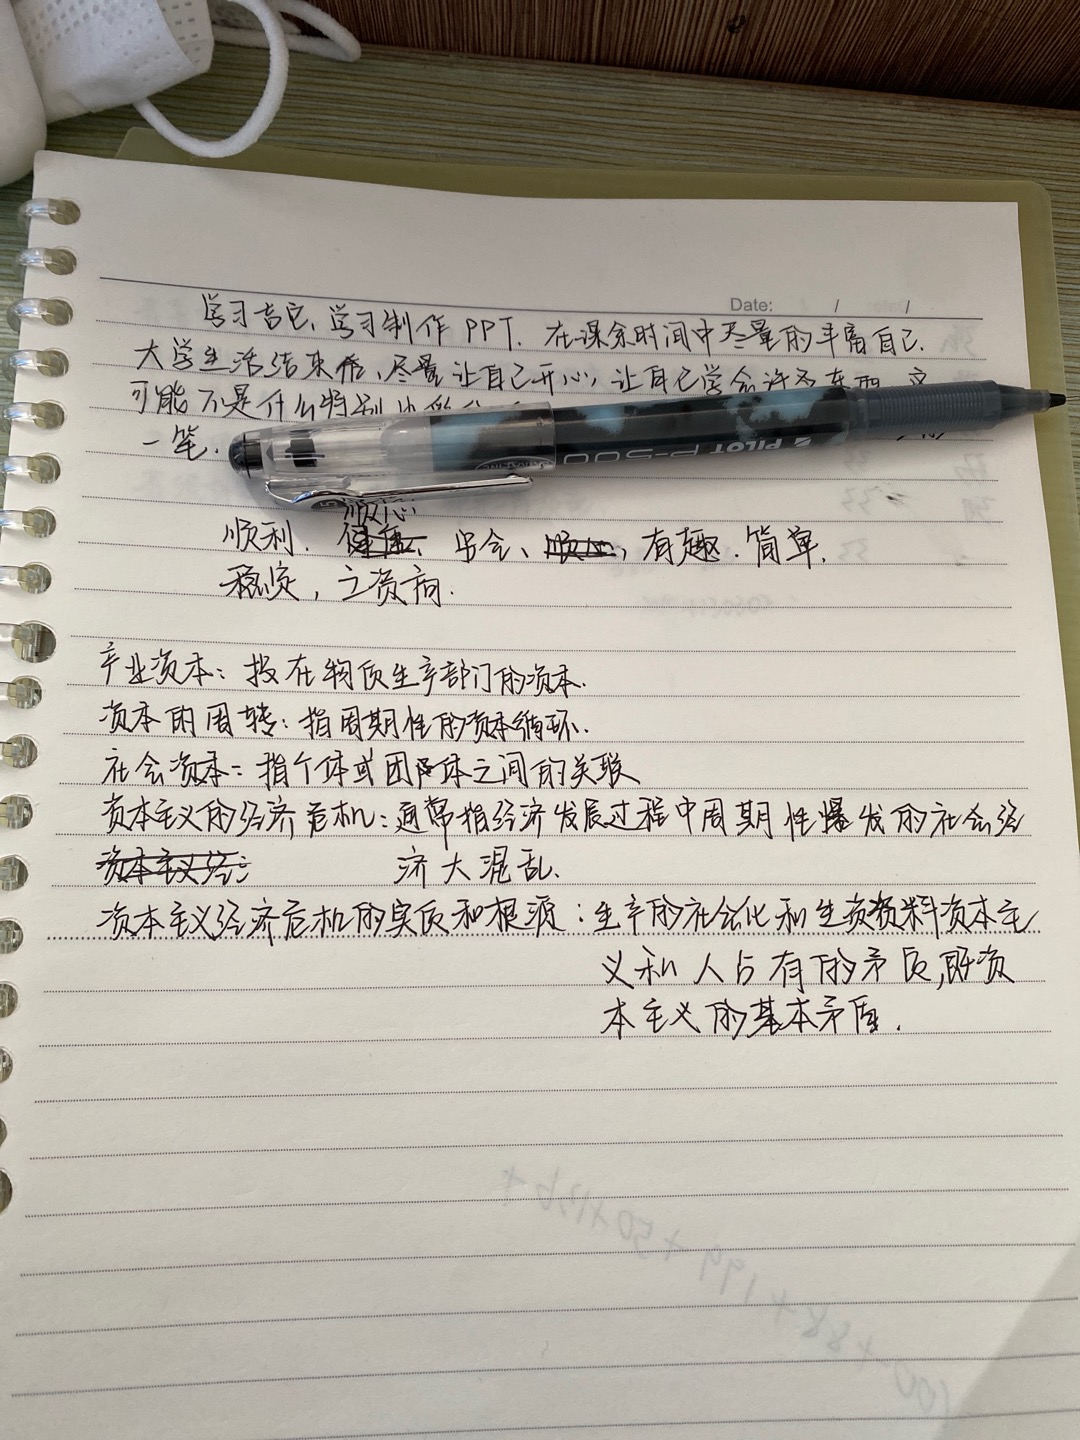 Date: / /
学习吉它、学习制作PPT. 在课余时间中尽量的丰富自己.
大学生活结束后,尽量让自己开心,让自己学会许多东西,
可能不是什么特别
一笔.
PILOT P-500
顺心
顺利. 健康、 学会、 顺心, 有趣. 简单.
稳定,
产业资本: 投在物质生产部门的资本.
资本的周转: 指周期性的资本循环.
社会资本: 指个体或团体之间的关联
资本主义的经济危机: 通常指经济发展过程中周期性爆发的社会经
资本主义经:
济大混乱.
资本主义经济危机的实质和根源: 生产的社会化和生资料资本主
义私人占有的矛盾,既资
本主义的基本矛盾.
100+88+199+50+136+